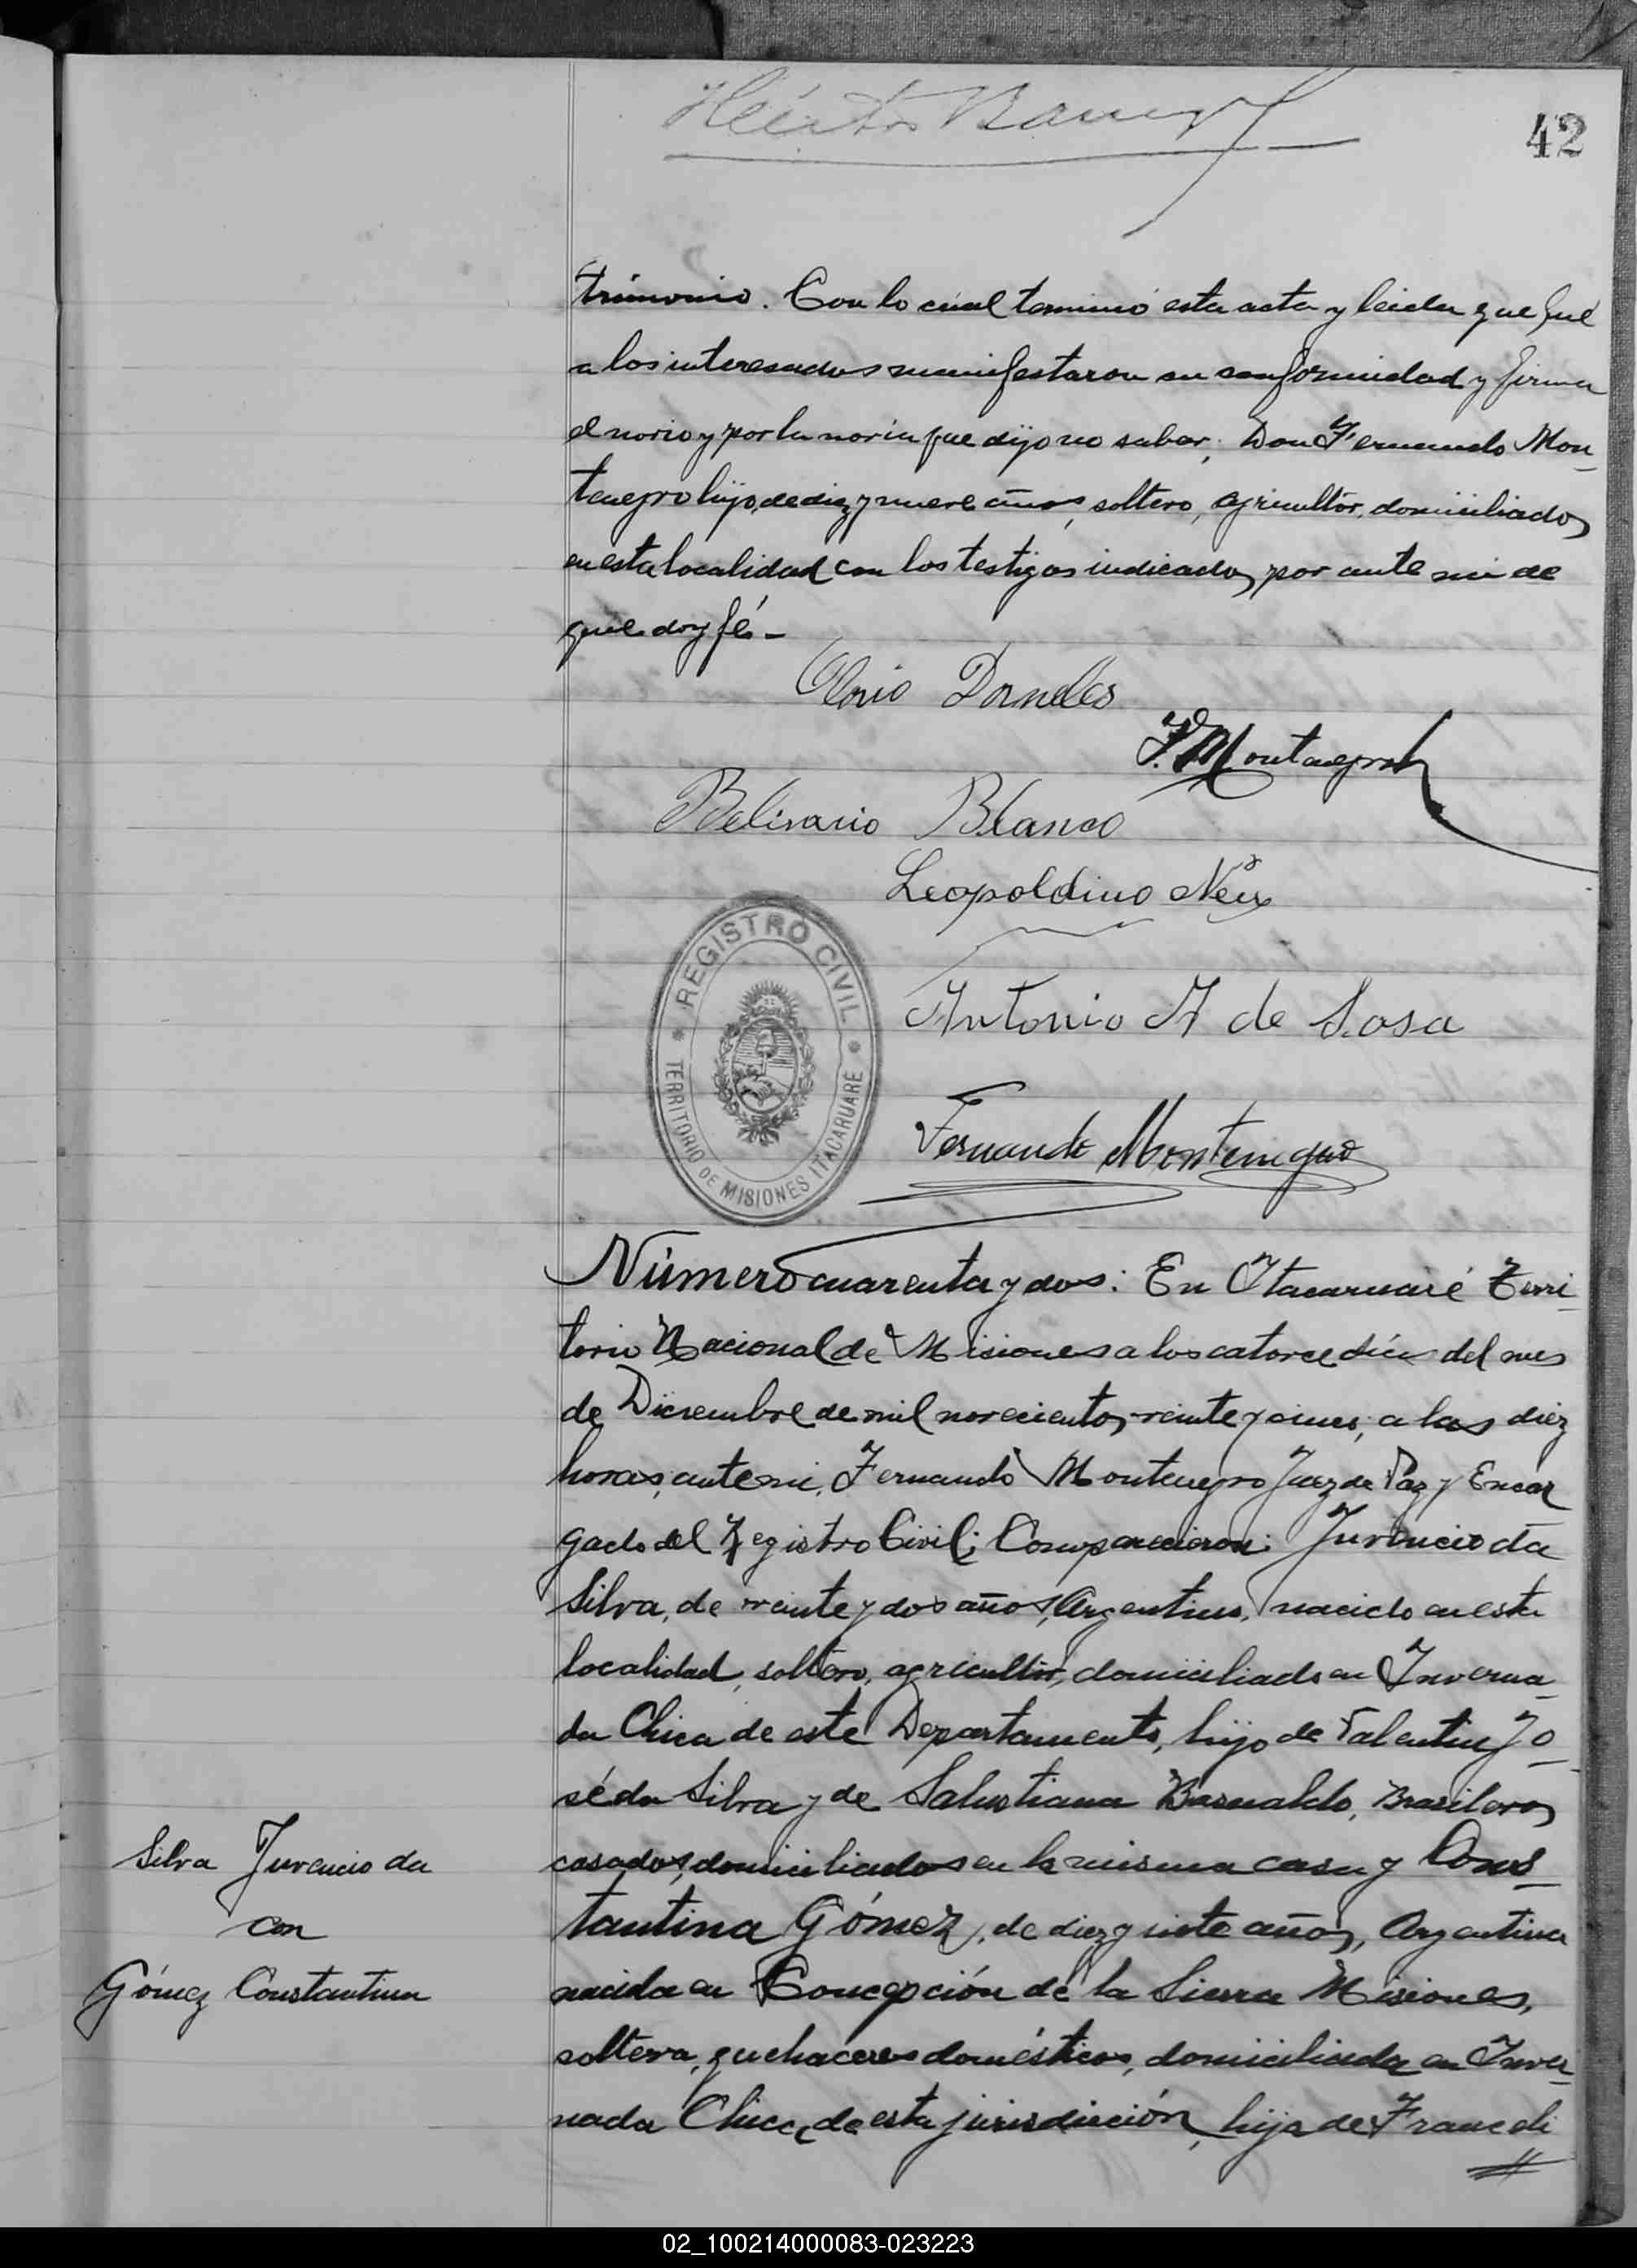 Héctor
42
trimonio. Con lo cual terminó esta acta y leida que fué
a los interesados manifestaron su conformidad y firma
el novio y por la novia que dijo no saber; Don Fernando Mon-
tenegro hijo, de diez y nueve años, soltero, agricultor, domiciliado,
en esta localidad con los testigos indicados, por ante mi de
que doy fé-
Dorneles
F. Montenegro h
Belisario Blanco
Leopoldino
REGISTRO CIVIL
TERRITORIO DE MISIONES ITACARUARE
Antonio A de Sosa
Fernando Montenegro
Número cuarenta y dos: En Itacaruaré Terri-
torio Nacional de Misiones a los catorce días del mes
de Diciembre de mil novecientos veinte y cinco, a las diez
horas, ante mi, Fernando Montenegro Juez de Paz y Encar-
gado del Registro Civil; Comparecieron: Juvencio da
Silva, de veinte y dos años, Argentino, nacido en esta
localidad, soltero, agricultor, domiciliado en Inverna-
da Chica de este Departamento, hijo de Valentin Jo-
sé da Silva y de Salustiana Basualdo, Brasileros,
casados, domiciliados en la misma casa y Cons-
tantina Gómez, de diez y siete años, Argentina
nacida en Concepción de la Sierra Misiones,
soltera, quehaceres domésticos, domiciliada en Inver-
nada Chica, de esta jurisdicción, hija de Francoli
Silva Juvencio da
con
Gómez Constantina
02_100214000083-023223